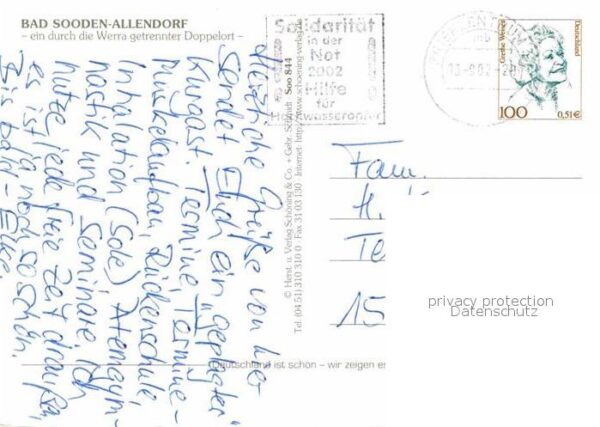 BAD SOODEN-ALLENDORF
– ein durch die Werra getrennter Doppelort –
Herzliche Grüße von hier
sendet Euch ein "geplagter"
Kurgast. Termine, Termine -
Muskelaufbau, Rückenschule
Inhalation (Sole) Atemgym-
nastik und Seminare. Ich
nutze jede freie Zeit draußen,
es ist ja noch so schön.
Bis bald - Elke.
© Herst. u. Verlag Schöning & Co. + Gebr. Schmidt · Soo 844
Tel. (04 51) 310 310 0 · Fax 31 03 130 · Internet: http://www.schoening-verlag.de
Solidarität
in der
Not
2002
Hilfe
für
Hochwasseropfer
BRIEFZENTRUM
Grethe Weiser
Deutschland
100
0,51€
Fam.
H.
Te
15
privacy protection
Datenschutz
Deutschland ist schön – wir zeigen es